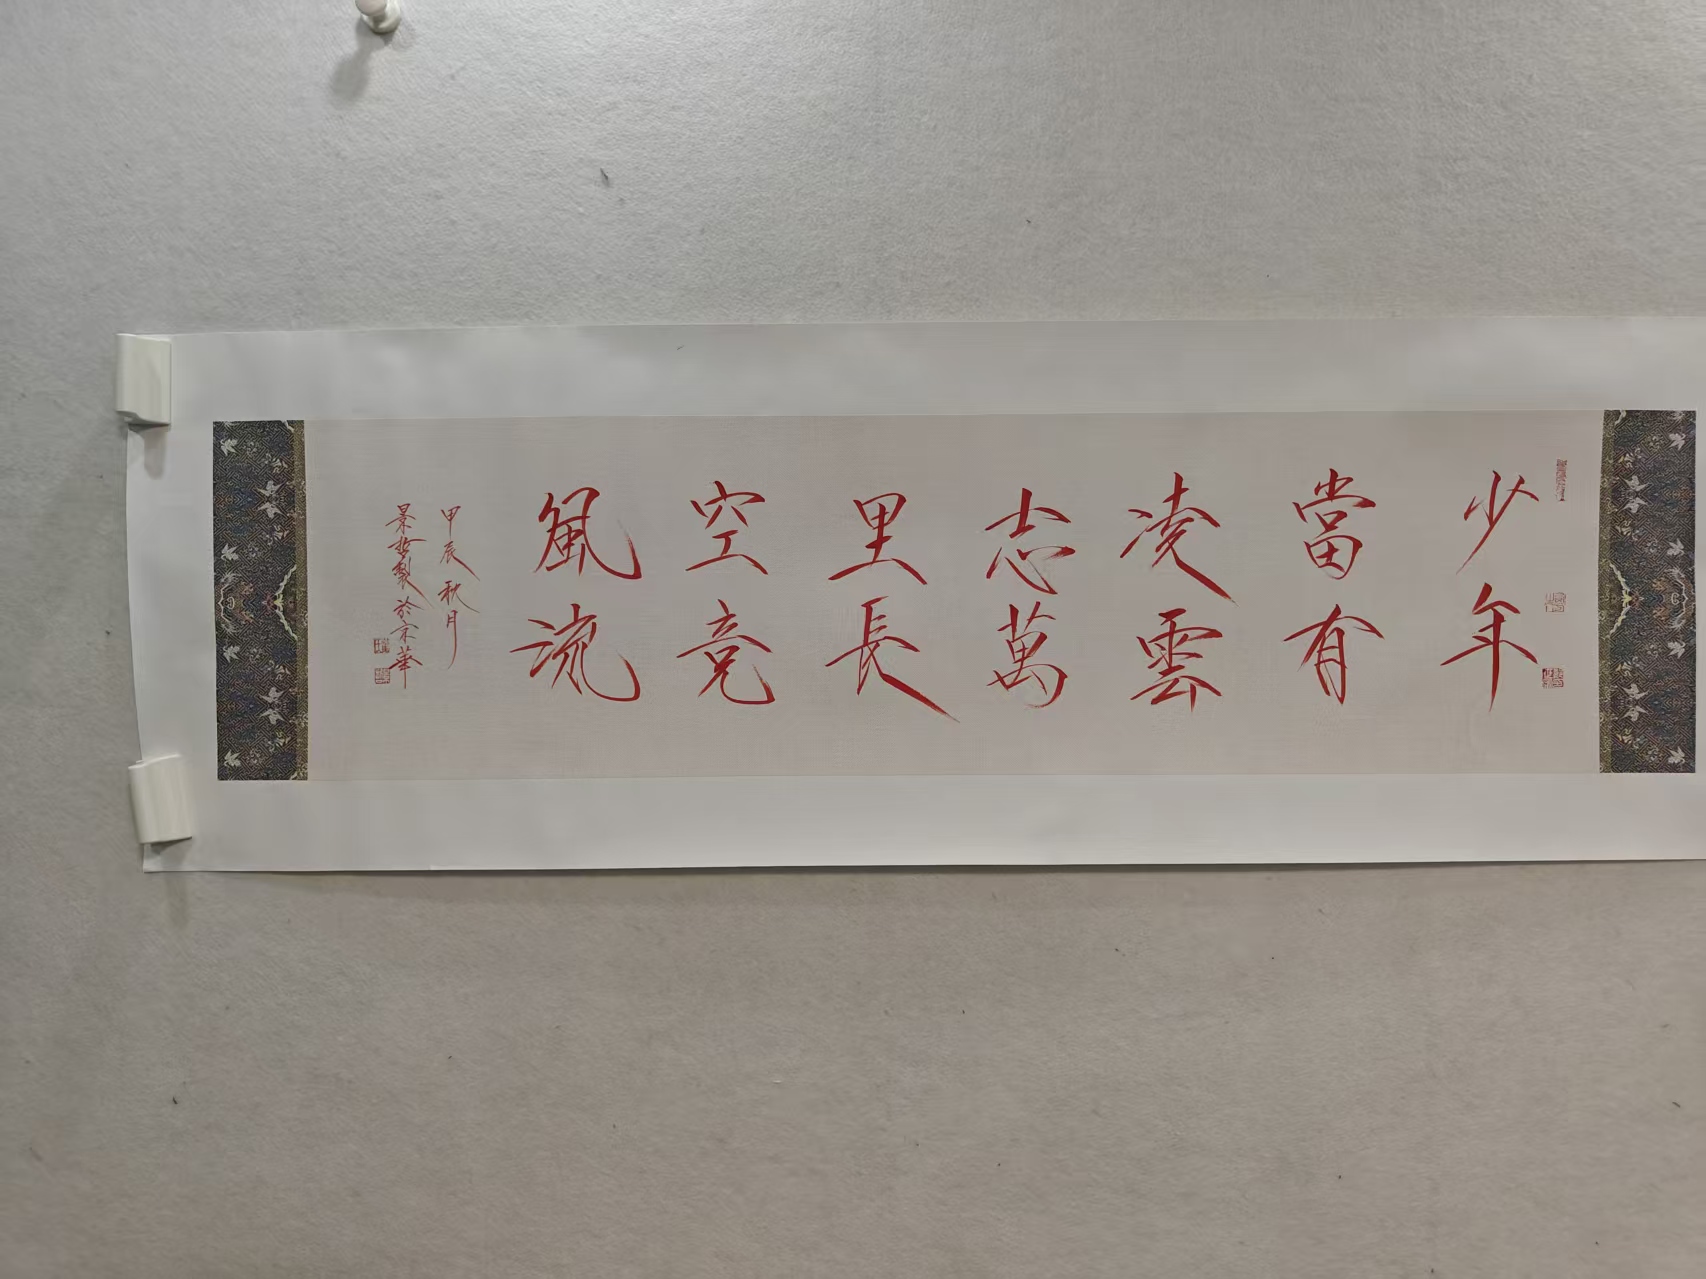 少年
當有
凌雲
志萬
里長
空竞
風流
甲辰秋月
景哲製於京華